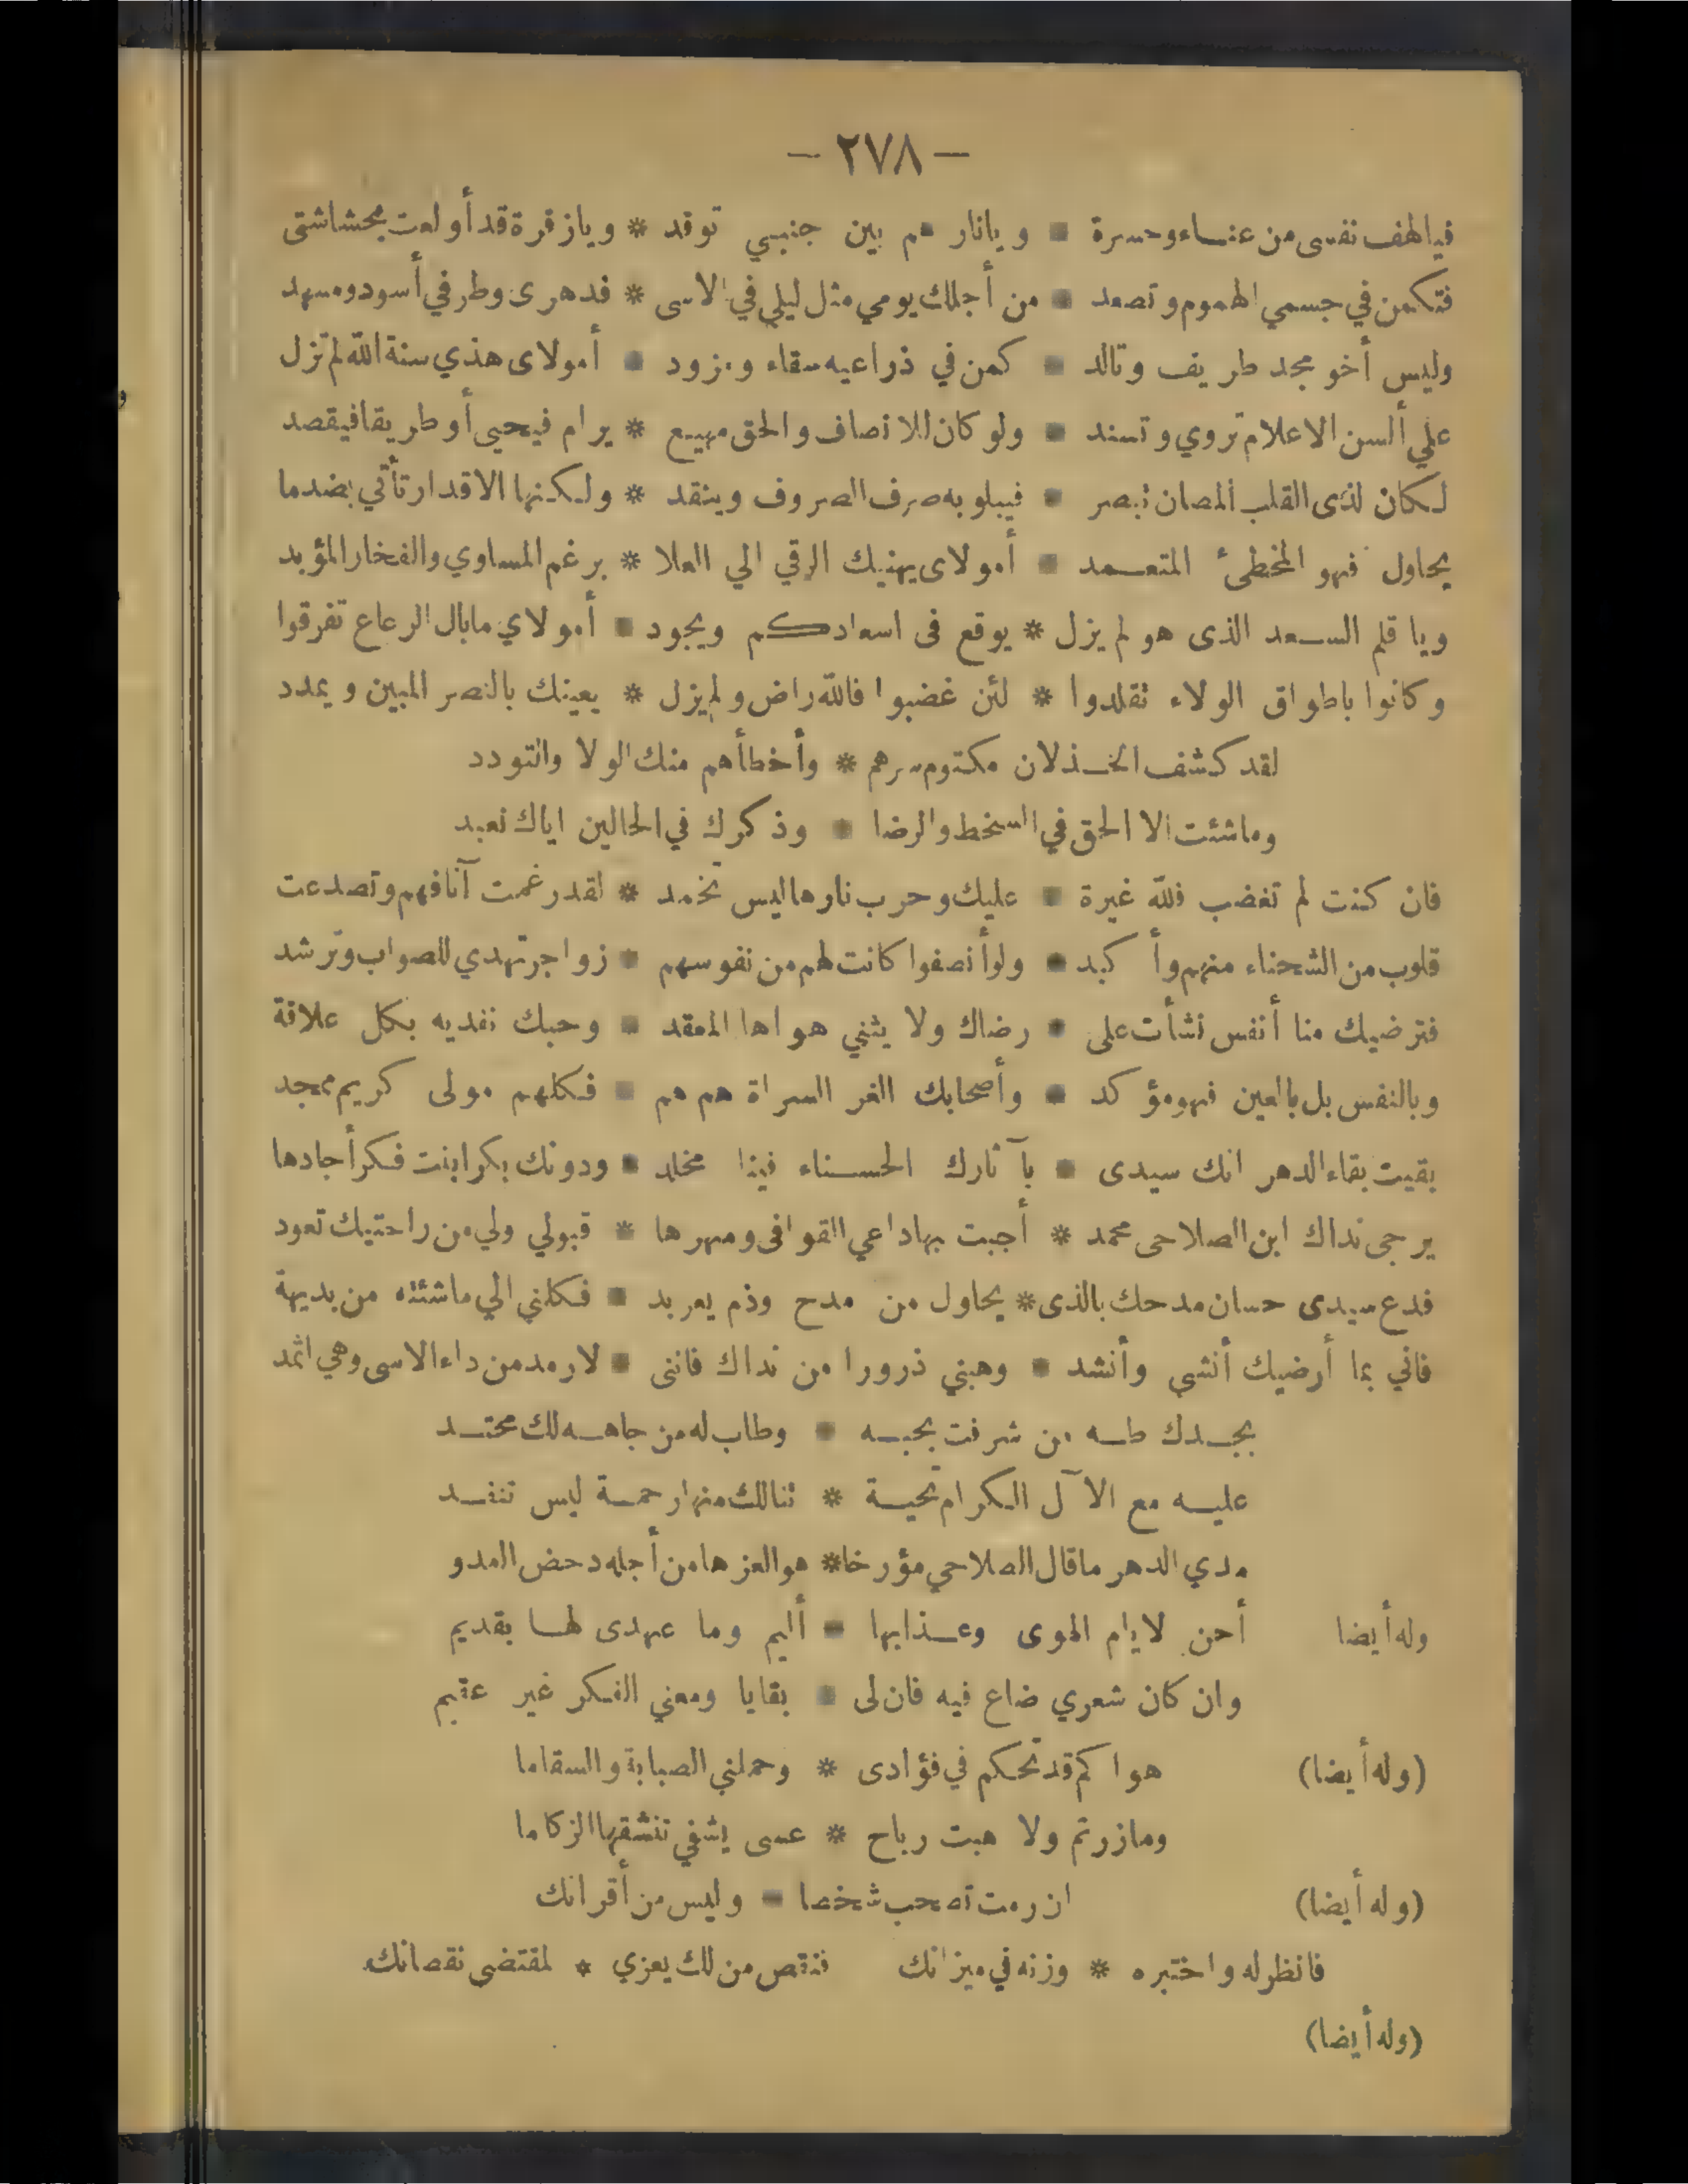 — ٢٧٨ —
فيالهف نفسى من عنساء وحسرة * ويانار هم بين جنبي توقد * ويازفرة قد أولعت بحشاشتى
فتكمن في جسمي الهموم وتصعد * من أجلك يومي مثل ليلي في الاسى * فدهرى وطرفي أسود ومسهد
وليس أخو مجد طريف وتالد * كمن في ذراعيه سقاء ومزود * أمولاى هذي سنة الله لم تزل
علي ألسن الاعلام تروي وتسند * ولو كان للانصاف والحق مهيع * يرام فيحيى أو طريقا فيقصد
لكان لذى القلب المصان تبصر * فيبلو به صرف الصروف وينقد * ولكنها الاقدار تأتي بضدما
يحاول فهو المخطئ المتعمد * أمولاى يهنيك الرقي الي العلا * برغم المساوي والفخار المؤبد
ويا قلم السعد الذى هو لم يزل * يوقع فى اسعادكم ويجود * أمولاي مابال الرعاع تفرقوا
وكانوا باطواق الولاء تقلدوا * لئن غضبوا فالله راض ولم يزل * يعينك بالنصر المبين ويمدد
لقد كشف الخذلان مكتوم سرهم * وأخطأهم منك الولا والتودد
وماشئت الا الحق في السخط والرضا * وذكرك في الحالين اياك نعبد
فان كنت لم تغضب فلله غيرة * عليك وحرب نارها ليس تخمد * لقد رغمت آنافهم وتصدعت
قلوب من الشحناء منهم وأكبد * ولو أنصفوا كانت لهم من نفوسهم * زواجر تهدي للصواب وترشد
فترضيك منا أنفس نشأت على * رضاك ولا يثني هواها المفقد * وحبك نفديه بكل علاقة
وبالنفس بل بالعين فهو مؤكد * وأصحابك الغر السراة هم هم * فكلهم مولى كريم ممجد
بقيت بقاء الدهر انك سيدى * بآثارك الحسناء فينا مخلد * ودونك بكرا بنت فكر أجادها
يرجى نداك ابن الصلاحى محمد * أجبت بها داعي القوافى ومهرها * قبولي ولي من راحتيك تعود
فدع سيدى حسان مدحك بالذى * يحاول من مدح وذم يعربد * فكلني الي ماشئته من بديهة
فاني بما أرضيك أنشي وأنشد * وهبني ذرورا من نداك فاننى * لارمد من داء الاسى وهي اثمد
بجدك طه من شرفت بحبه * وطاب له من جاهه لك محتد
عليه مع الآل الكرام تحية * تنالك منها رحمة ليس تنفد
مدي الدهر ماقال الصلاحي مؤرخا * هو العز هامن أجله دحض العدو
وله أيضا أحن لايام الهوى وعذابها * أليم وما عهدى لها بقديم
وان كان شعري ضاع فيه فان لى * بقايا ومعني الفكر غير عقيم
(وله أيضا) هواكم قد تحكم في فؤادى * وحملني الصبابة والسقاما
ومازرتم ولا هبت رياح * عسى يشفي تنشقها الزكاما
(وله أيضا) ان رمت تصحب شخصا * وليس من أقرانك
فانظر له واختبره * وزنه في ميزانك فنقص من لك يعزي * لمقتضى نقصانك
(وله أيضا)